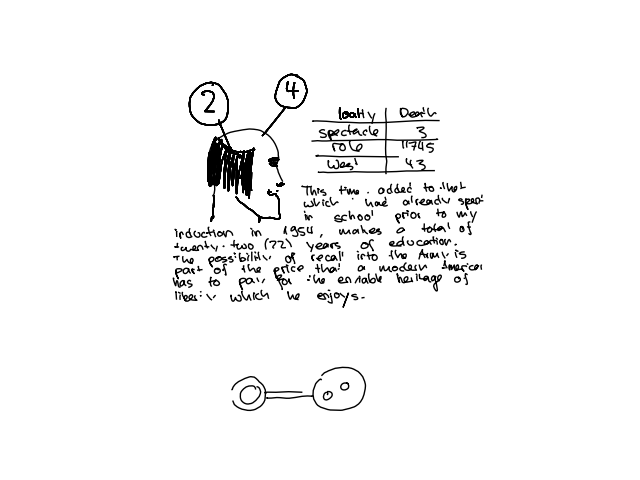 2
4
locality Death
spectacle 3
role 11745
West 43
This time, added to that
which had already spent
in school prior to my
induction in 1954, makes a total of
twenty-two (22) years of education.
The possibility of recall into the Army is
part of the price that a modern American
has to pay for the enviable heritage of
liberty which he enjoys.